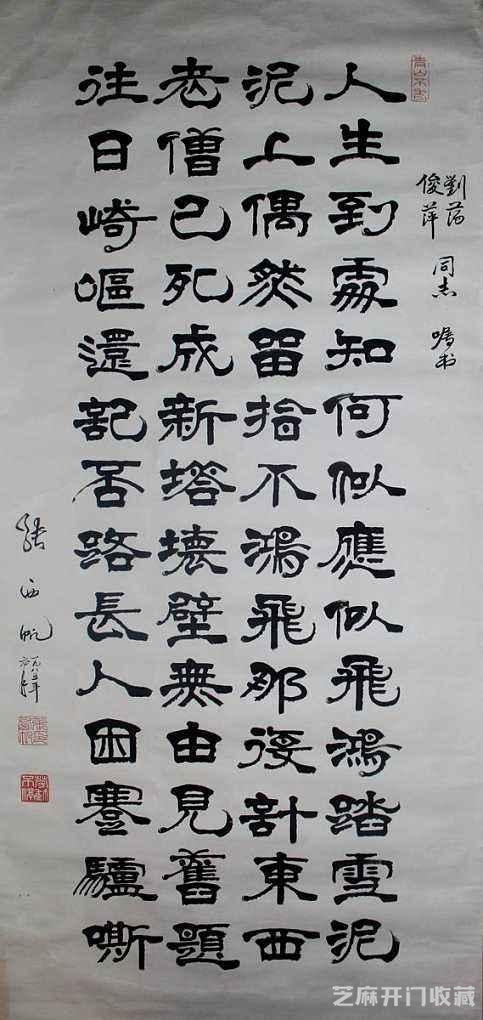 人生到處知何似應似飛鴻踏雪泥
泥上偶然留指不鴻飛那復計東西
老僧已死成新塔壞壁無由見舊題
往日崎嶇還記否路長人困蹇驢嘶
劉
俊萍
同志 嘱书
張西帆
一九八三年
芝麻开门收藏